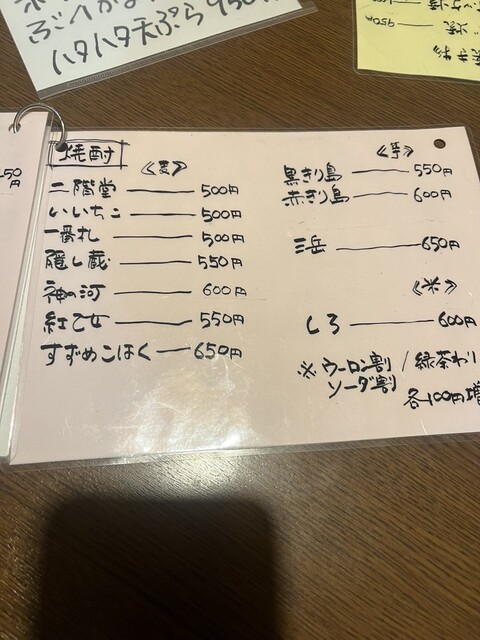 ハタハタ天ぷら 950円
焼酎
《麦》
二階堂 500円
いいちこ 500円
一番札 500円
隠し蔵 550円
神の河 600円
紅乙女 550円
すずめこはく 650円
《芋》
黒きり島 550円
赤きり島 600円
三岳 650円
《米》
しろ 600円
※ウーロン割 / 緑茶わり
ソーダ割
各100円増